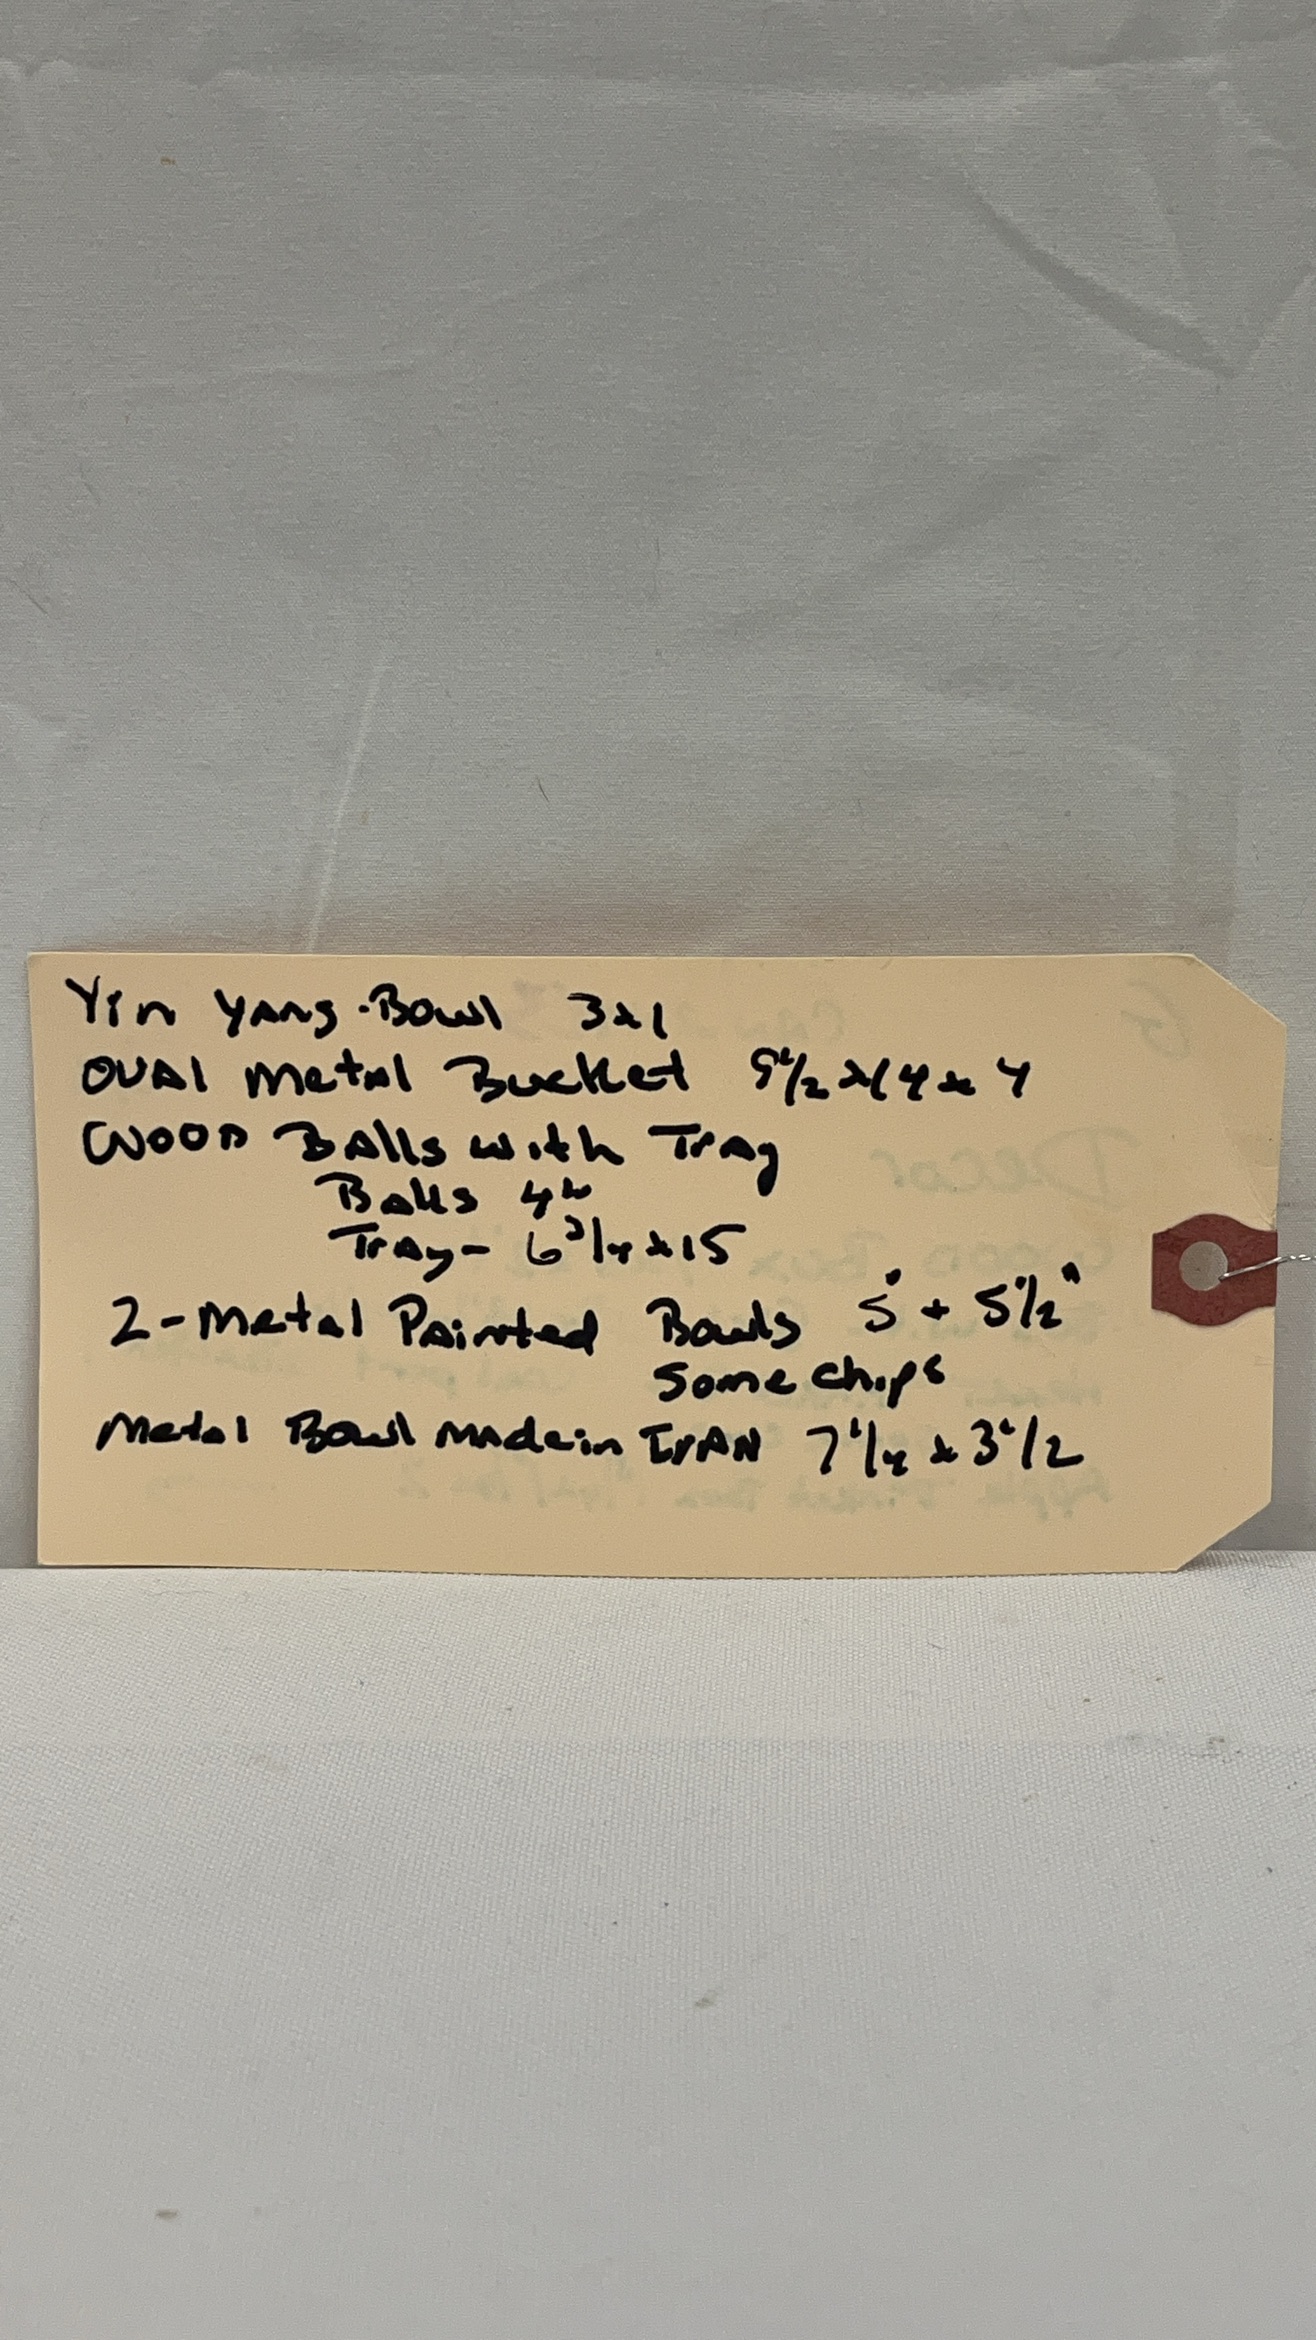 Yin Yang Bowl 3x1
Oval Metal Bucket 9 1/2 x 14 x 4
Wood Balls with Tray
Balls 4"
Tray - 6 3/4 x 15
2 - Metal Painted Bowls 5" + 5 1/2"
Some chips
Metal Bowl made in IrAN 7 1/4 x 3 1/2